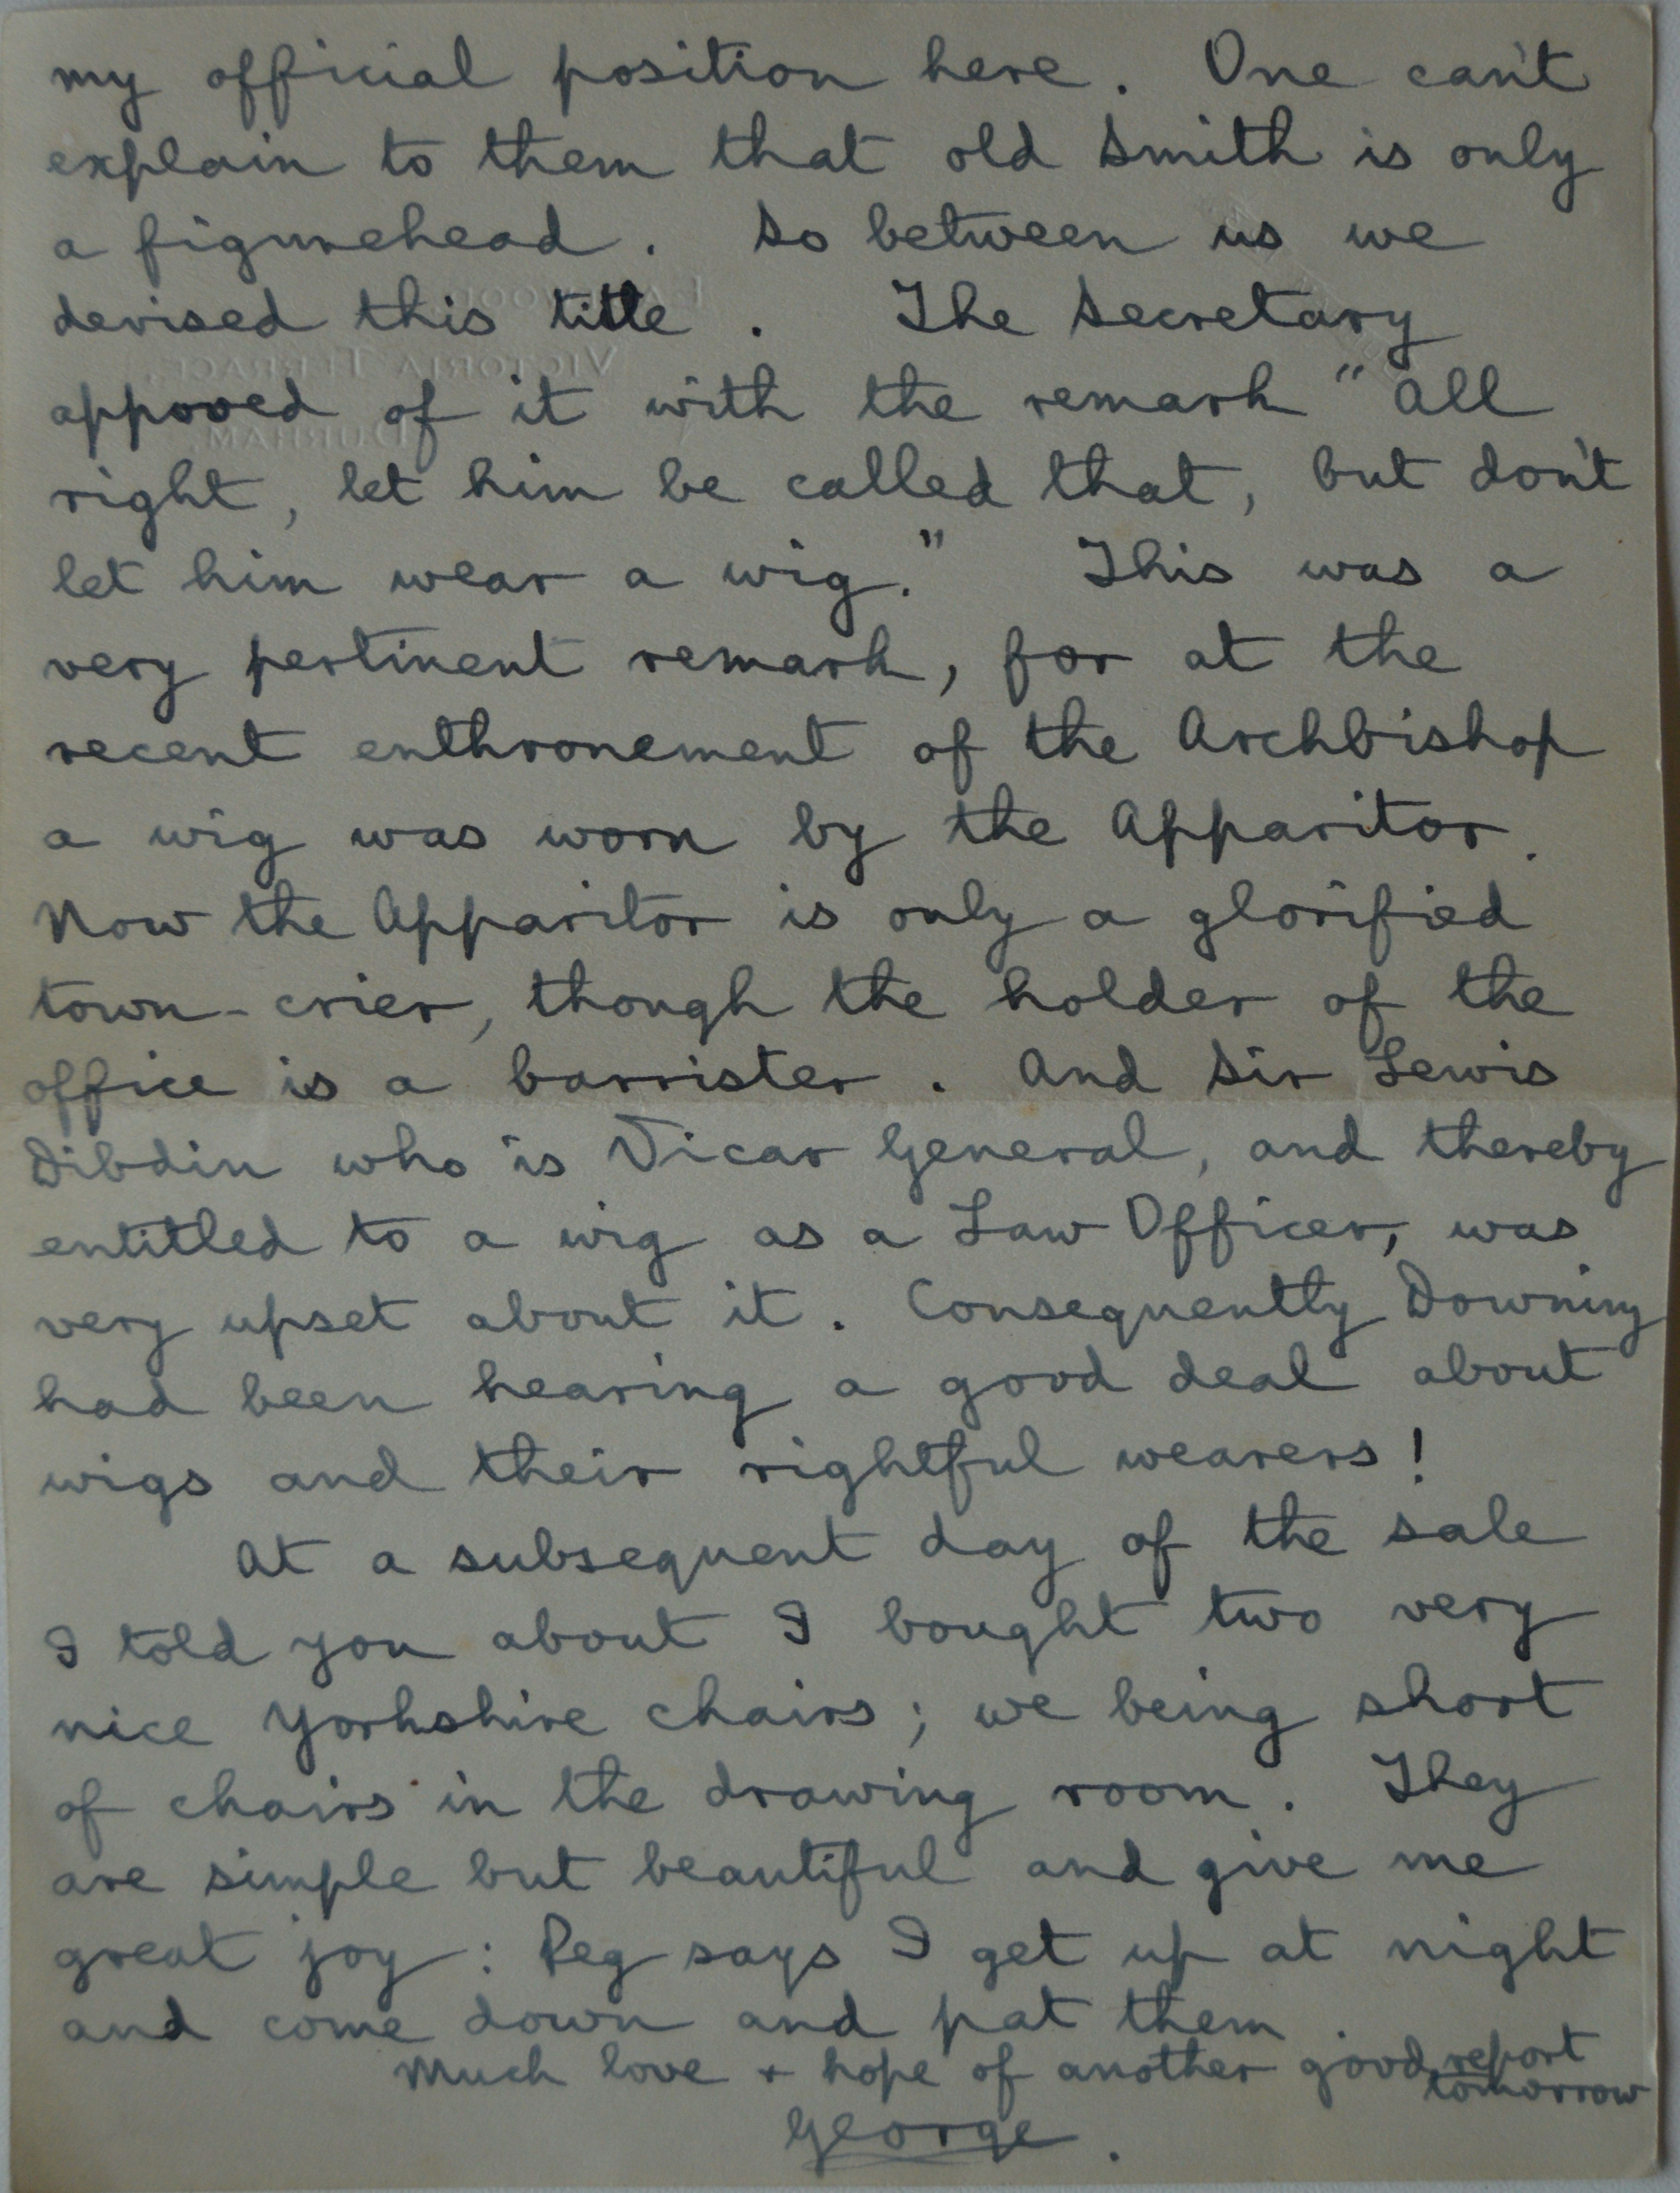 my official position here. One can't
explain to them that old Smith is only
a figurehead. So between us we
devised this title. The Secretary
appooed of it with the remark "All
right, let him be called that, but don't
let him wear a wig." This was a
very pertinent remark, for at the
recent enthronement of the Archbishop
a wig was worn by the Apparitor.
Now the Apparitor is only a glorified
town-crier, though the holder of the
office is a barrister. And Sir Lewis
Dibdin who is Vicar General, and thereby
entitled to a wig as a Law Officer, was
very upset about it. Consequently Downing
had been hearing a good deal about
wigs and their rightful wearers!
At a subsequent day of the sale
I told you about I bought two very
nice Yorkshire chairs; we being short
of chairs in the drawing room. They
are simple but beautiful and give me
great joy: Peg says I get up at night
and come down and pat them.
Much love + hope of another good report
tomorrow
George.
VICTORIA TERRACE,
DURHAM.